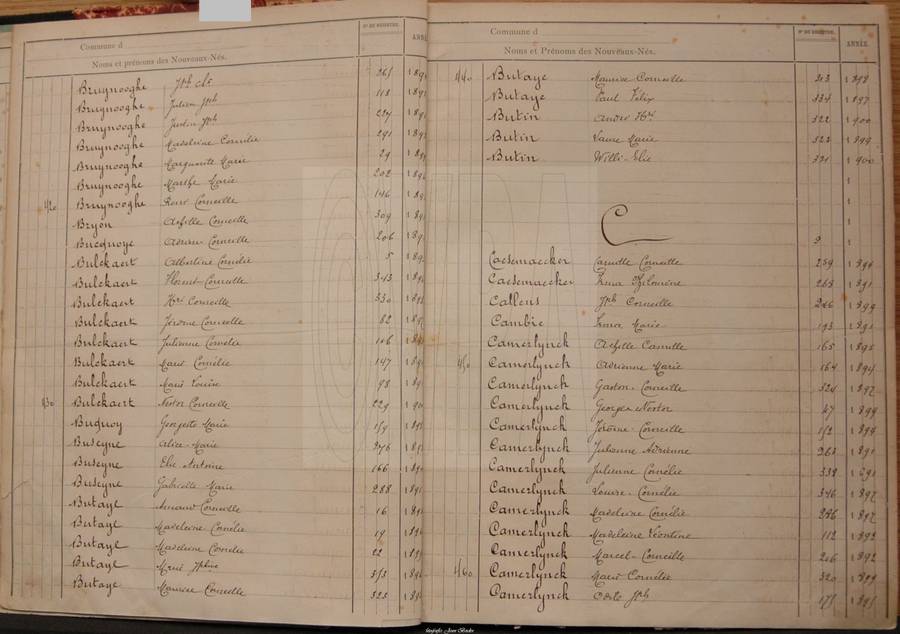 Commune d
Nos DE REGISTRE.
ANNÉE
Noms et prénoms des Nouveaux-Nés.
Bruynooghe Jph Chs 261 189
Bruynooghe Julien Jph 118 189
Bruynooghe Justin Jph 227 189
Bruynooghe Madeleine Cornélie 291 189
Bruynooghe Marguerite Marie 29 189
Bruynooghe Marthe Marie 202 189
420 Bruynooghe René Corneille 146 189
Bryon Achille Corneille 309 189
Bucquoye Adrien Corneille 206 189
Bulckaert Albertine Cornélie 5 189
Bulckaert Florent Corneille 343 189
Bulckaert Hri Corneille 330 189
Bulckaert Jérôme Corneille 82 189
Bulckaert Julienne Cornélie 106 189
Bulckaert Marie Cornélie 147 189
Bulckaert Marie Louise 98 189
430 Bulckaert Nestor Corneille 229 190
Buquoy Georgette Marie 189
Buseyne Alice Marie 376 189
Buseyne Elie Antoine 166 189
Buseyne Gabrielle Marie 288 189
Butaye Arnaud Corneille 16 189
Butaye Madeleine Cornélie 19 189
Butaye Madeleine Cornélie 22 189
Butaye Marie Jphine 313 189
Butaye Maurice Corneille 323 189
Commune d
Nos DE REGISTRE.
ANNÉE.
Noms et Prénoms des Nouveaux-Nés.
440 Butaye Maurice Corneille 303 1898
Butaye Paul Félix 334 1897
Butin André Hri 322 1900
Butin Laure Marie 322 1899
Butin Willi-Elie 321 1900
C
Caesemaecker Camille Corneille 259 1894
Caesemaecker Irma Philomène 263 1891
Callens Jph Corneille 246 1899
Cambie Irma Marie 193 1891
Camerlynck Achille Camille 165 1895
450 Camerlynck Adrienne Marie 164 1894
Camerlynck Gaston Corneille 324 1897
Camerlynck Georges Nestor 47 1899
Camerlynck Jérôme Corneille 152 1894
Camerlynck Julienne Adrienne 263 1891
Camerlynck Julienne Cornélie 332 1891
Camerlynck Louise Cornélie 346 1897
Camerlynck Madeleine Cornélie 286 1897
Camerlynck Madeleine Léontine 112 1893
Camerlynck Marcel Corneille 206 1892
460 Camerlynck Marie Cornélie 320 1899
Camerlynck Odile Jph 175 1895